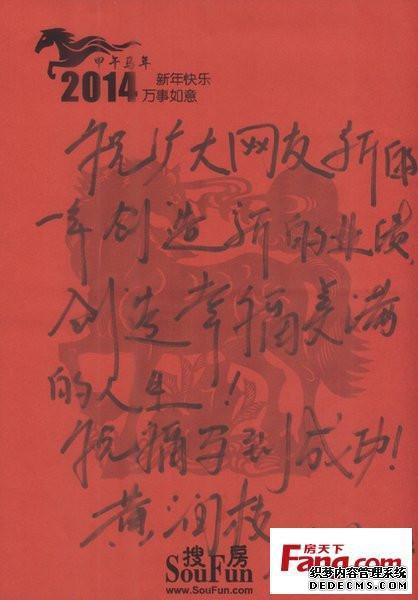 甲午马年
2014 新年快乐
万事如意
祝广大网友新的
一年创造新的业绩,
创造幸福美满
的人生!
祝福马到成功!
黄润枝
搜房
SouFun
www.SouFun.com
房天下
Fang.com
织梦内容管理系统
DEDECMS.COM